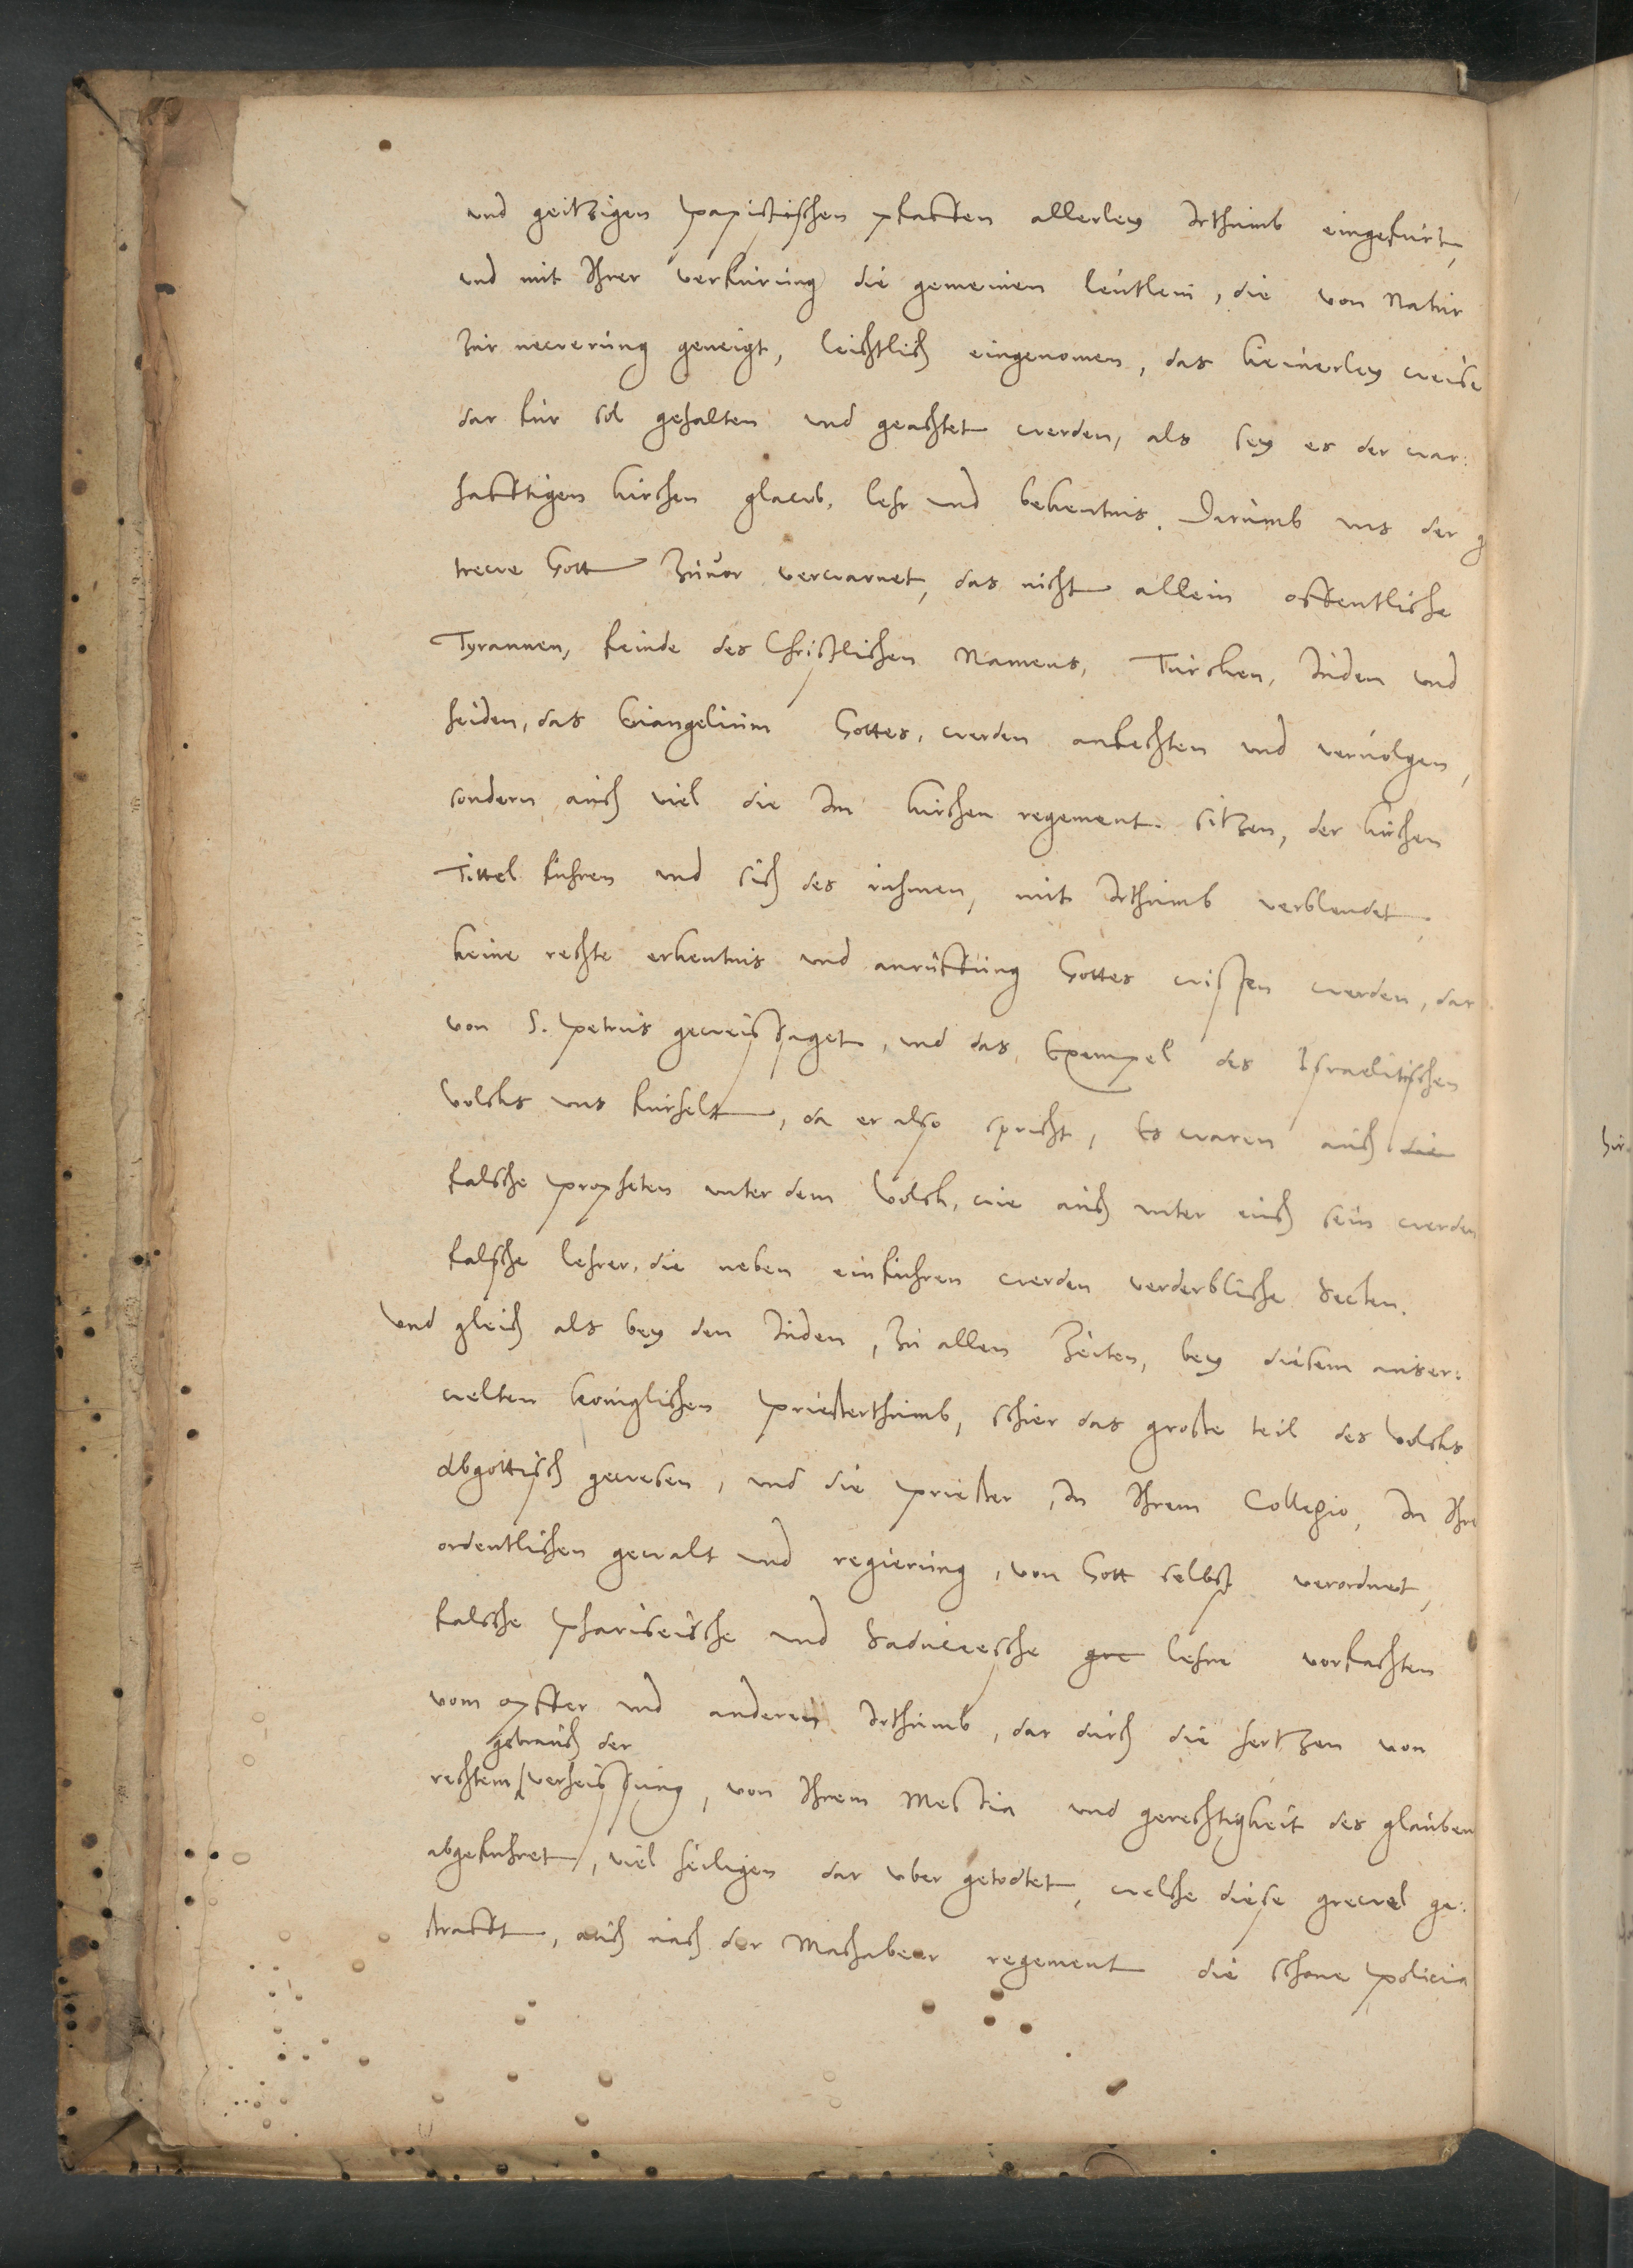 und geitzigen papistischen pfaffen allerley Irthumb eingefurt,
und mit Ihrer verfurung die gemeinen leutlein, die von Natur
zur newerung geneigt, leichtlich eingenomen, das keinerley weise
dar fur sol gehalten und geachtet werden, als sey es der war:
hafftigen kirchen glawb, lehr und bekentnis. Darumb uns der g
trewe Gott zuvor verwarnet, das nicht allein offentliche
Tyrannen, feinde des Christlichen Namens, Turcken, Juden und
heiden, das Evangelium Gottes, werden anfechten und vervolgen,
sondern auch viel die Im kirchen regement sitzen, der kirchen
Tittel fuhren und sich des ruhmen, mit Irthumb verblendet,
keine rechte erkentnis und anruffung Gottes wissen werden, dar
von S. Petrus geweissaget, und das Exempel des Israelitischen
volcks uns furhelt, da er also spricht, Es waren auch die
falsche propheten unter dem Volck, wie auch unter euch sein werden
falsche lehrer, die neben einfuhren werden verderbliche Secten.
Und gleich als bey den Juden, zu allen Zeiten, bey diesem auser:
welten koniglichen Priesterthumb, schier das groste teil des Volcks
Abgottisch gewesen, und die Priester, In Ihrem Collegio, In Ihre
ordentlichen gewalt und regierung, von Gott selbst verordnet,
falsche Phariseische und Saduceesche gre lehre vorfachten
vom opffer und anderen Irthumb, dar durch die hertzen von
gebrauch der
rechtem verheissung, von Ihrem Messia und gerechtigkeit des glauben
abgefuhret, viel heiligen dar uber getodtet, welche diese grewel ge:
strafft, auch nach der Machabeer regement die schone Policia